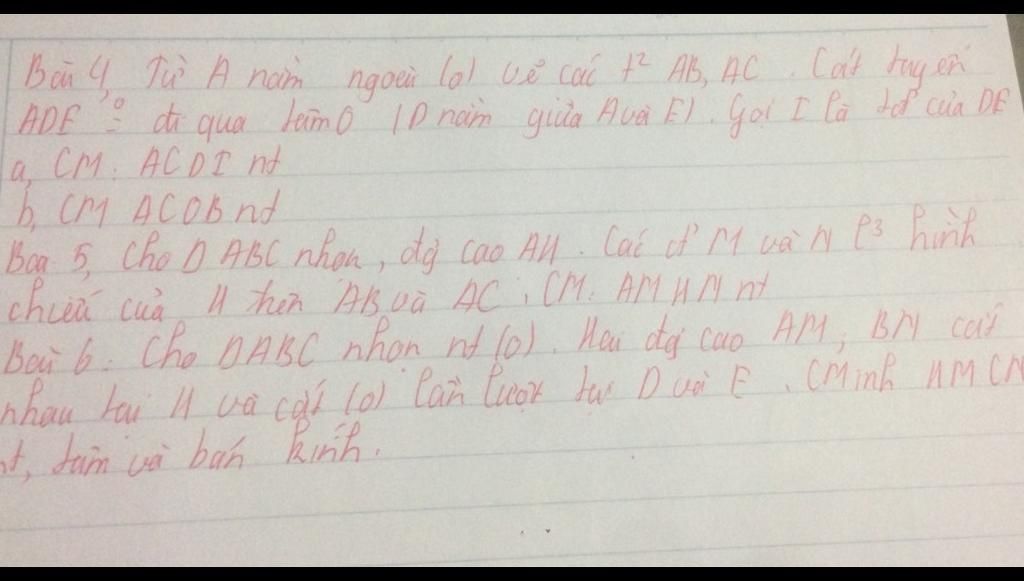 Bài 4, Từ A nằm ngoài (O) vẽ các t² AB, AC. Cát tuyến
ADE đi qua tâm O (D nằm giữa A và E). Gọi I là tđ của DE
a, CM: ACOI nt
b, CM ACOB nt
Bài 5, Cho Δ ABC nhọn, đg cao AH. Các đ' M và N l³ hình
chiếu của H trên AB và AC, CM: AMHN nt
Bài 6: Cho ΔABC nhọn nt (O). Hai đg cao AM, BN cắt
nhau tại H và cắt (O) lần lượt tại D và E. CMinh HMCN
nt, tâm và bán kính.